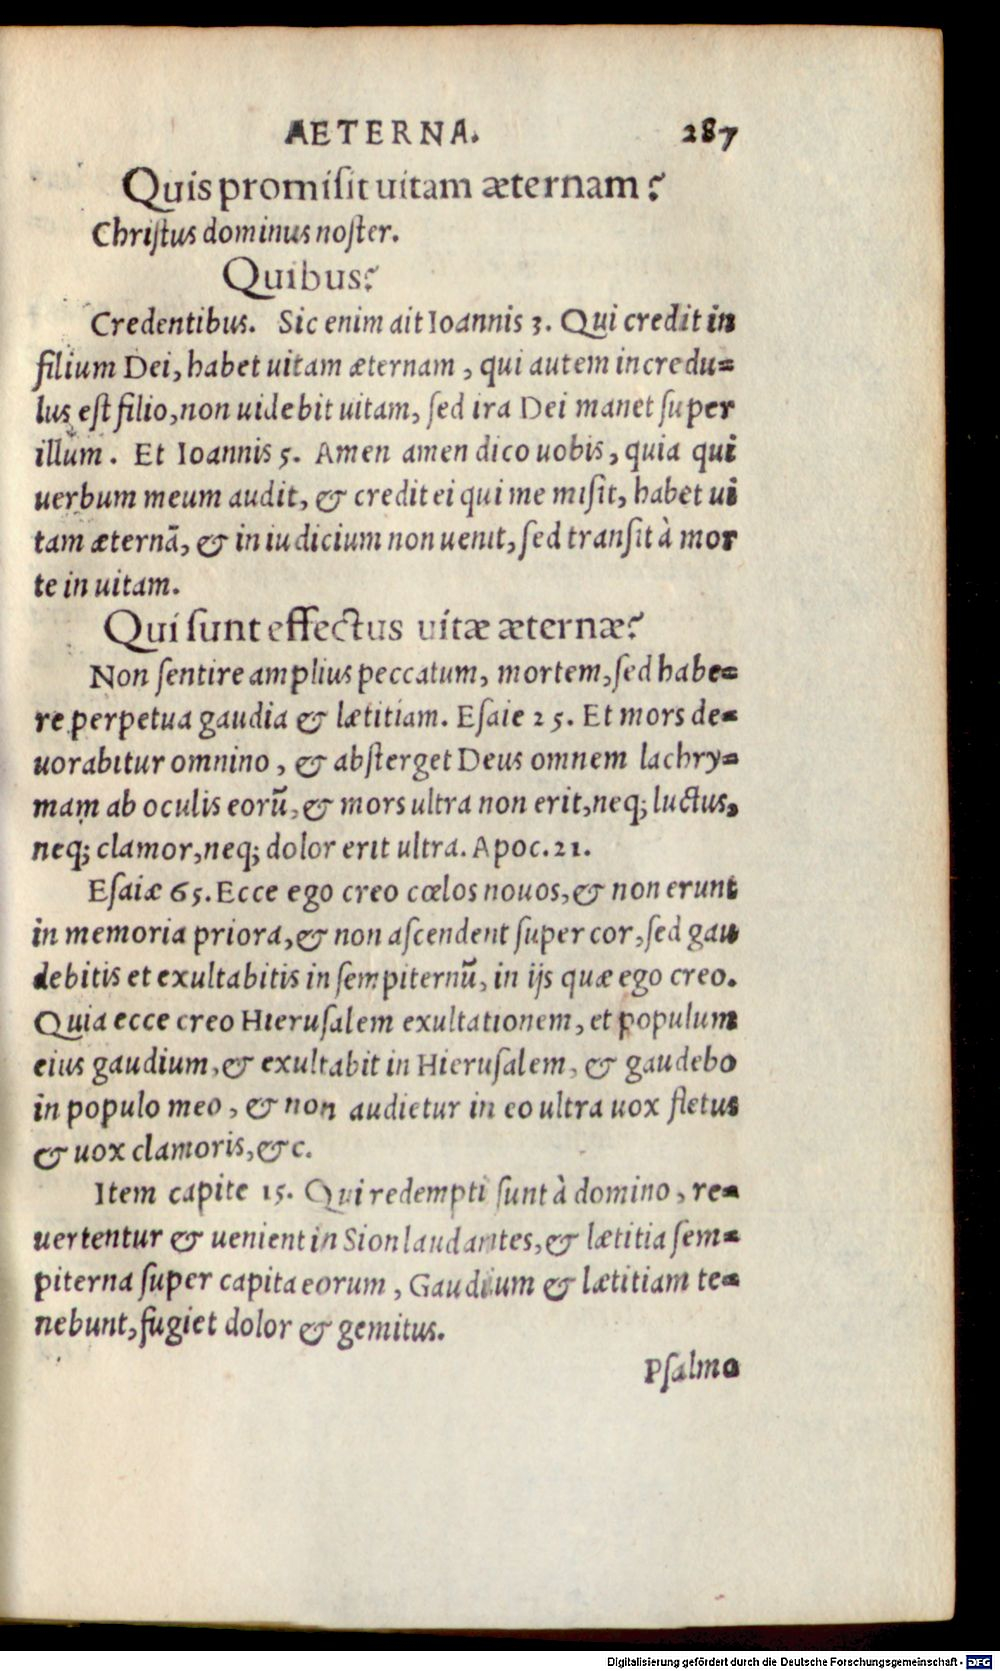 AETERNA. 287
Quis promisit uitam æternam?
Christus dominus noster.
Quibus?
Credentibus. Sic enim ait Ioannis 3. Qui credit in
filium Dei, habet uitam æternam, qui autem incredu=
lus est filio, non uidebit uitam, sed ira Dei manet super
illum. Et Ioannis 5. Amen amen dico uobis, quia qui
uerbum meum audit, & credit ei qui me misit, habet ui
tam æternā, & in iudicium non uenit, sed transit à mor
te in uitam.
Qui sunt effectus uitæ æternæ?
Non sentire amplius peccatum, mortem, sed habe=
re perpetua gaudia & lætitiam. Esaie 25. Et mors de=
uorabitur omnino, & absterget Deus omnem lachry=
mam ab oculis eorū, & mors ultra non erit, neq; luctus,
neq; clamor, neq; dolor erit ultra. Apoc. 21.
Esaiæ 65. Ecce ego creo cœlos nouos, & non erunt
in memoria priora, & non ascendent super cor, sed gau
debitis et exultabitis in sempiternū, in ijs quæ ego creo.
Quia ecce creo Hierusalem exultationem, et populum
eius gaudium, & exultabit in Hierusalem, & gaudebo
in populo meo, & non audietur in eo ultra uox fletus
& uox clamoris, &c.
Item capite 15. Qui redempti sunt à domino, re=
uertentur & uenient in Sion laudantes, & lætitia sem=
piterna super capita eorum, Gaudium & lætitiam te=
nebunt, fugiet dolor & gemitus.
Psalmo
Digitalisierung gefördert durch die Deutsche Forschungsgemeinschaft - DFG